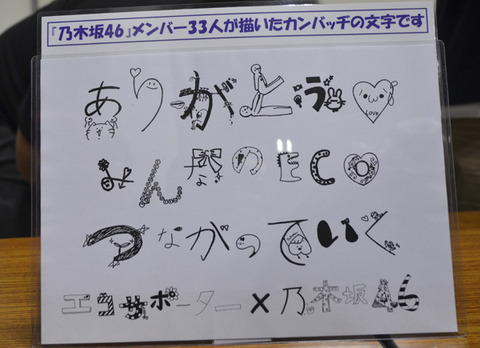 『乃木坂46』メンバー33人が描いたカンバッチの文字です
ありがとう♡
LOVE
みんなのECO
つながっていく
エコサポーター×乃木坂46